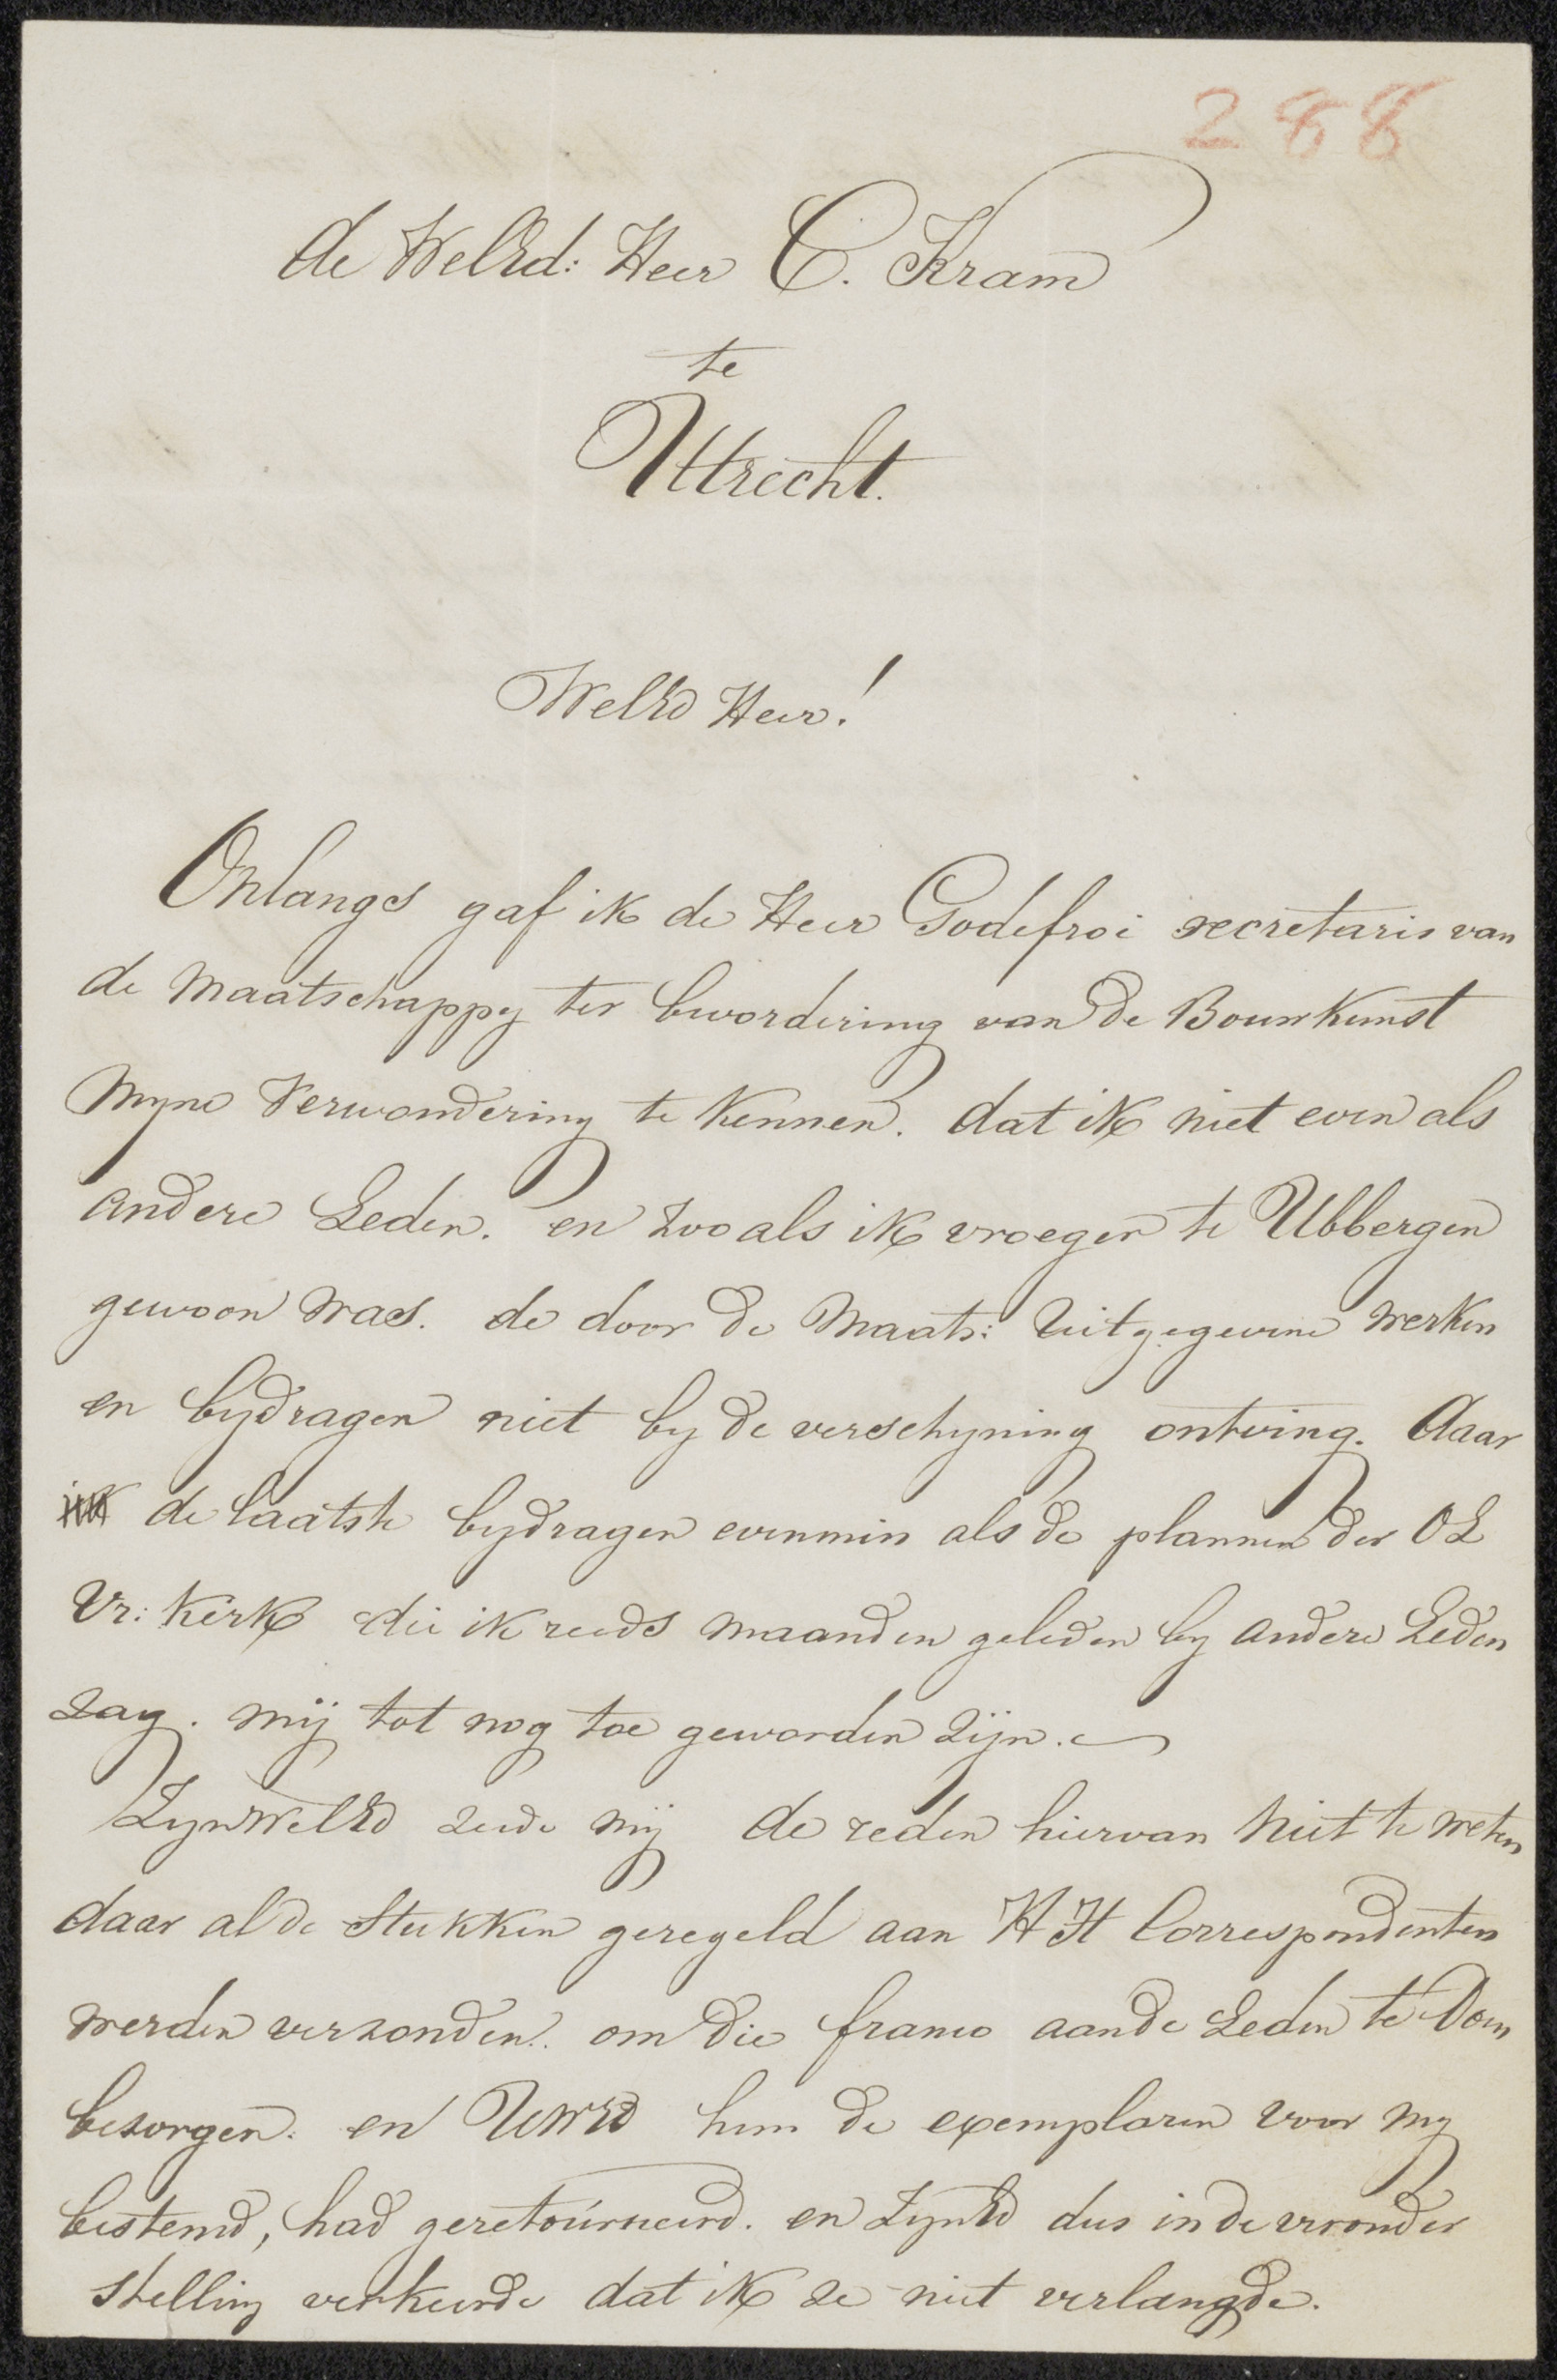 288
de WelEd: Heer C. Kram
te
Uttrecht.
WelEd Heer!
Onlangs gaf ik de Heer Godefroi secretaris van
de Maatschappy ter bevordering van de Bouwkunst
myne Verwondering te kennen. dat ik niet even als
andere Leden. en zoo als ik vroeger te Ubbergen
gewoon was. de door de Maats: uitgegevene werken
en bydragen niet by de verschyning ontving. daar
de laatste bydragen evenmin als de plannen der OL
Vr: Kerk die ik reeds maanden geleden by andere Leden
zag. mij tot nog toe geworden zijn.
ZynWelEd zeide mij de reden hiervan niet te weten
daar al de stukken geregeld aan HH Correspondenten
werden verzonden. om die franco aan de Leden te doen
bezorgen. en UwEd hem de exemplaren voor my
bestemd, had geretourneerd. en ZynEd dus in de veronder
stelling verkeerde dat ik ze niet verlangde.